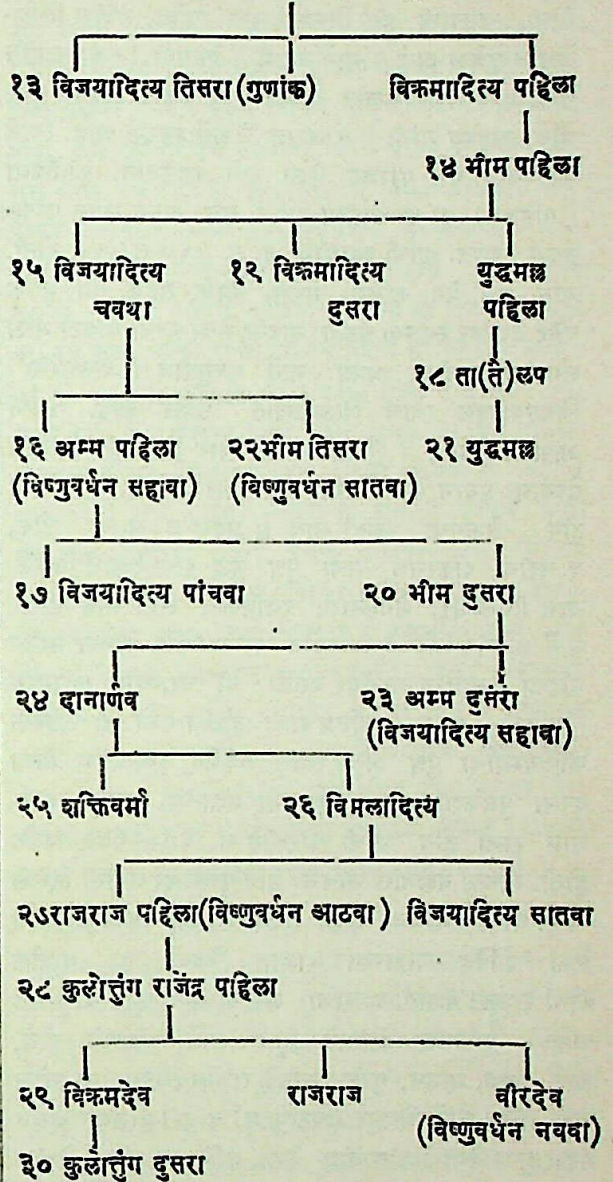 १३ विजयादित्य तिसरा (गुणांक) विक्रमादित्य पहिला
१४ भीम पहिला
१५ विजयादित्य १९ विक्रमादित्य युद्धमल्ल
चवथा दुसरा पहिला
१८ ता(ते)लप
१६ अम्म पहिला २२भीम तिसरा २१ युद्धमल्ल
(विष्णुवर्धन सहावा) (विष्णुवर्धन सातवा)
१७ विजयादित्य पांचवा २० भीम दुसरा
२४ दानार्णव २३ अम्म दुसरा
(विजयादित्य सहावा)
२५ शक्तिवर्मा २६ विमलादित्य
२७राजराज पहिला (विष्णुवर्धन आठवा) विजयादित्य सातवा
२८ कुलोत्तुंग राजेंद्र पहिला
२९ विक्रमदेव राजराज वीरदेव
(विष्णुवर्धन नववा)
३० कुलोत्तुंग दुसरा